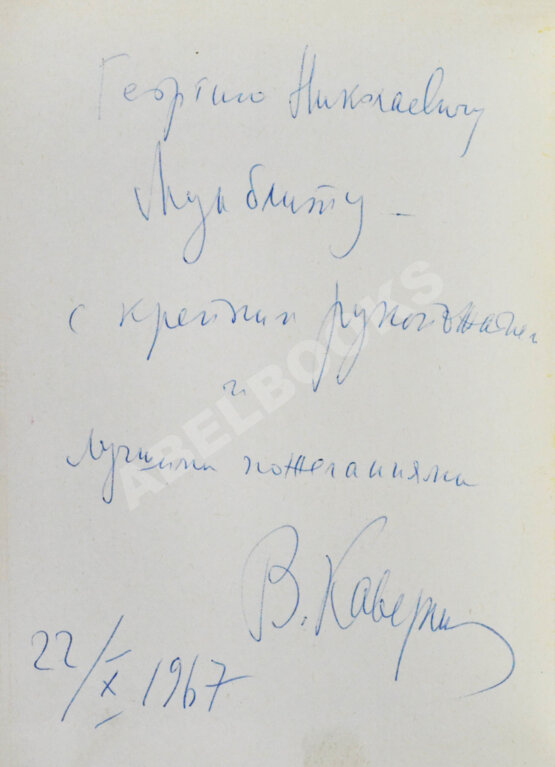 Георгию Николаевичу
Мунблиту –
с крепким рукопожатием
и
лучшими пожеланиями
В. Каверин
22/X 1967
ABELBOOKS